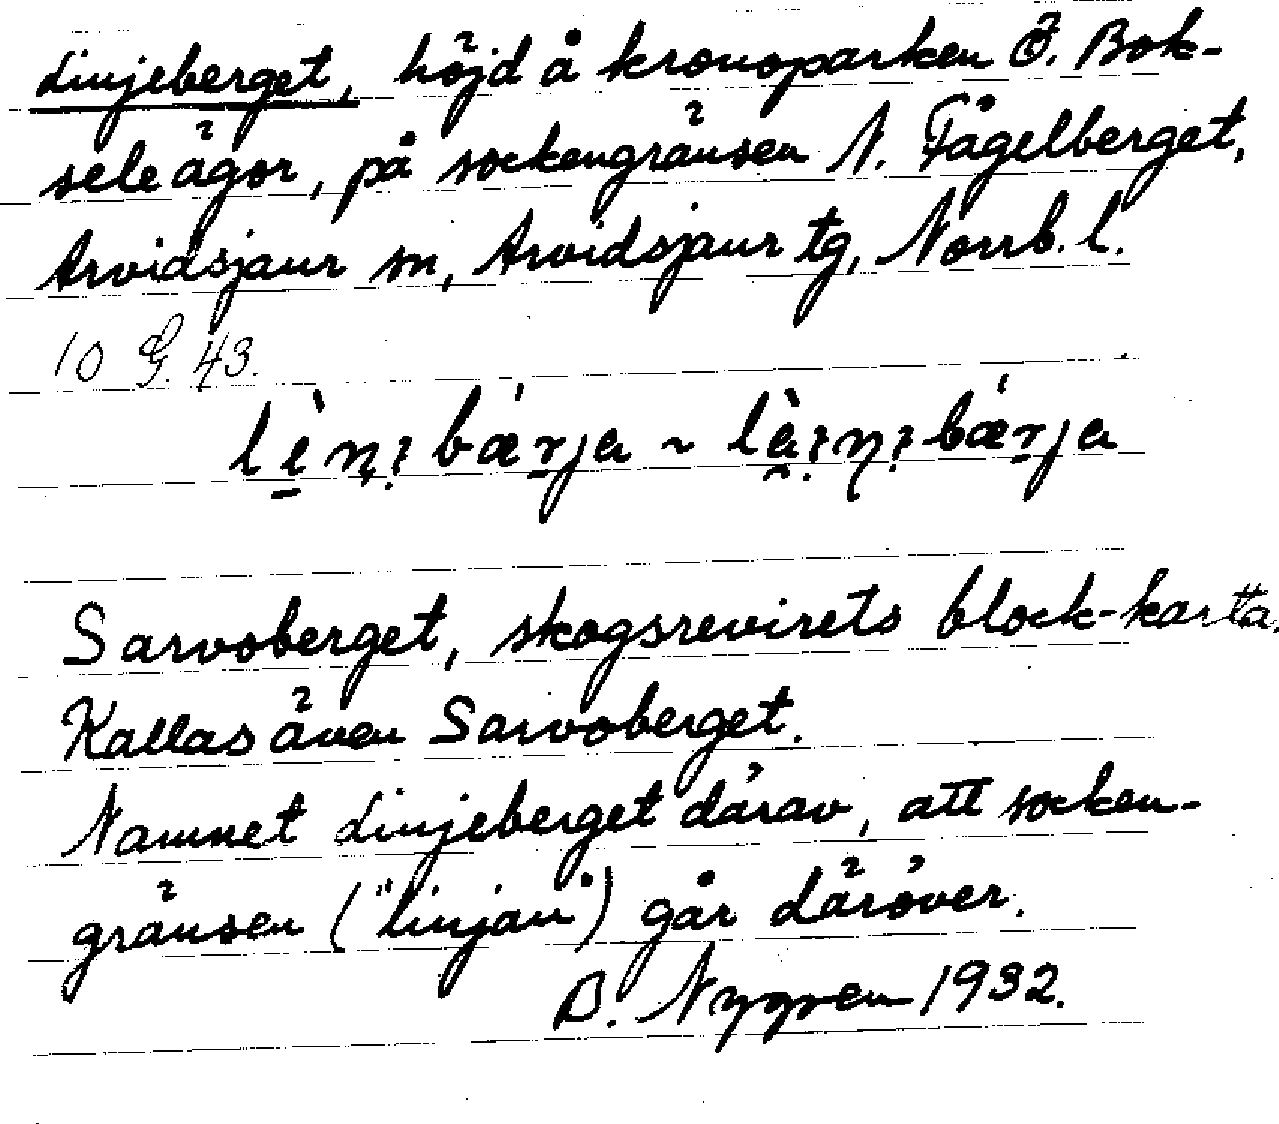 Linjeberget, höjd å kronoparken Ö. Bok-
seleägor, på sockengränsen N. Fågelberget,
Arvidsjaur sn, Arvidsjaur tg, Norrb. l.
10 G. 43.
Sarvoberget, skogsrevirets block-karta.
Kallas även Sarvoberget.
Namnet Linjeberget därav, att socken-
gränsen ("linjan") går däröver.
B. Nygren 1932.